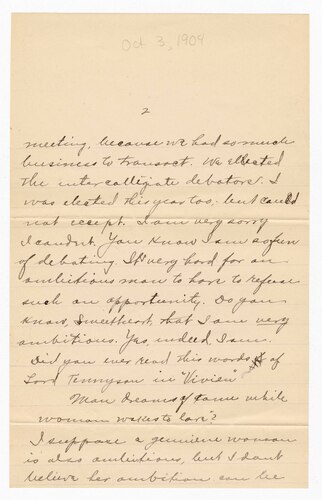 Oct 3, 1909
2
meeting, because we had so much
business to transact. We ellected
the intercollegiate debators. I
was elected this year too, but could
not accept. I am very sorry
I couldn't. You know I am so fon
of debating. It's very hard for an
ambitious man to have to refuse
such an opportunity. Do you
know, Sweetheart, that I am very
ambitious. Yes, indeed, I am.
Did you ever read this words of
Lord Tennyson in "Vivien"
Man dreams of fame while
woman wakes to love?
I suppose a genuine woman
is also ambitious, but I don't
believe her ambition can be